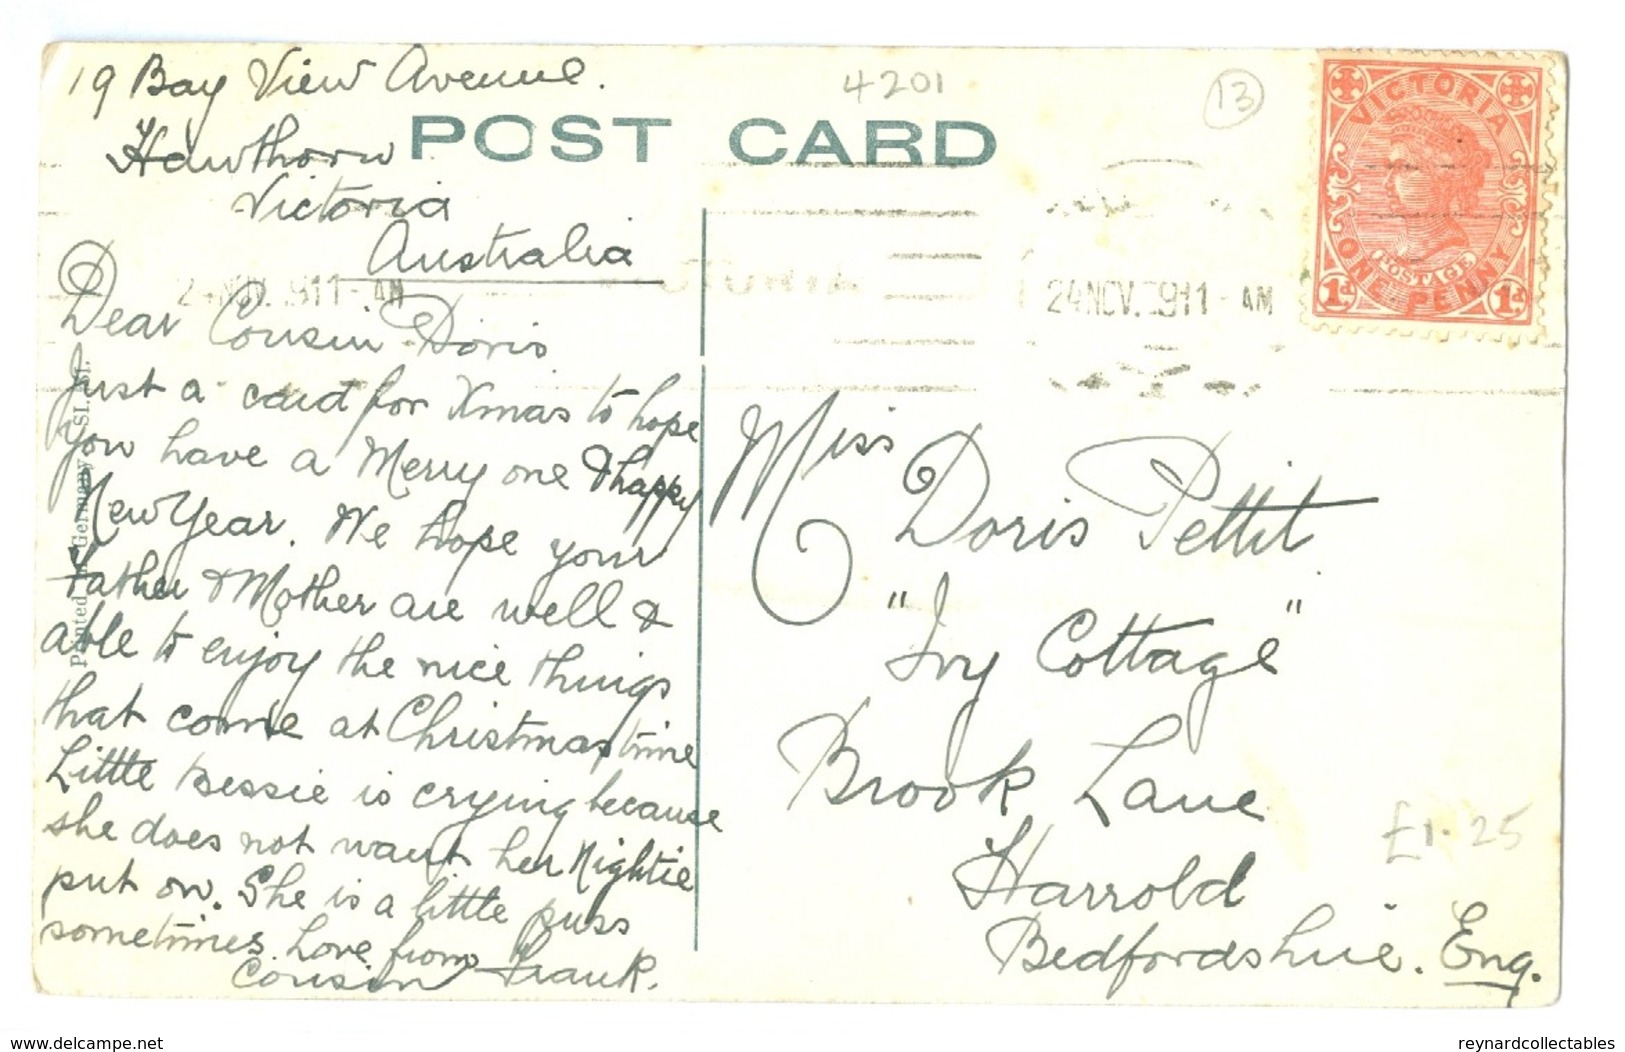 19 Bay View Avenue.
Hawthorn
Victoria
Australia
POST CARD
4201
13
VICTORIA
POSTAGE
ONE PENNY
1d 1d
24 NOV. 1911 - AM
24 NOV. 1911 - AM
Dear Cousin Doris
Just a card for Xmas to hope
you have a Merry one & happy
New Year. We hope your
Father & Mother are well &
able to enjoy the nice things
that come at Christmas time
Little Bessie is crying because
she does not want her Nightie
put on. She is a little puss
sometimes. Love from
Cousin Frank.
Printed in Germany
Miss
Doris Pettit
"Ivy Cottage"
Brook Lane
Harrold
Bedfordshire. Eng.
£1.25
www.delcampe.net
reynardcollectables